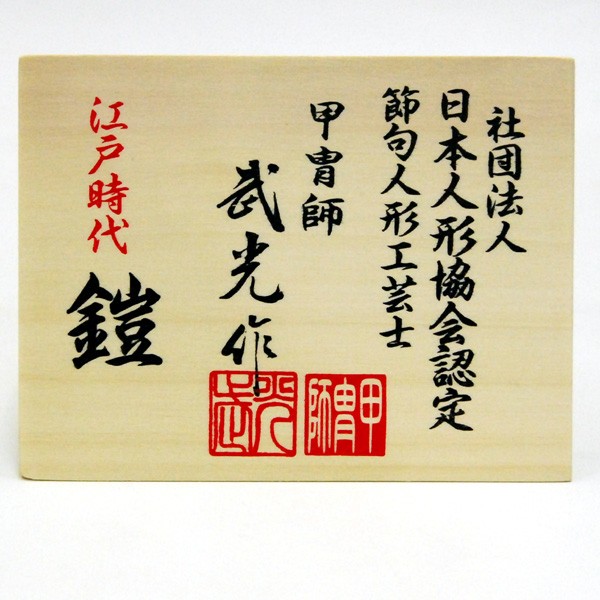 社団法人
日本人形協会認定
節句人形工芸士
甲冑師
武光作
江戸時代
鎧
甲冑師
武光